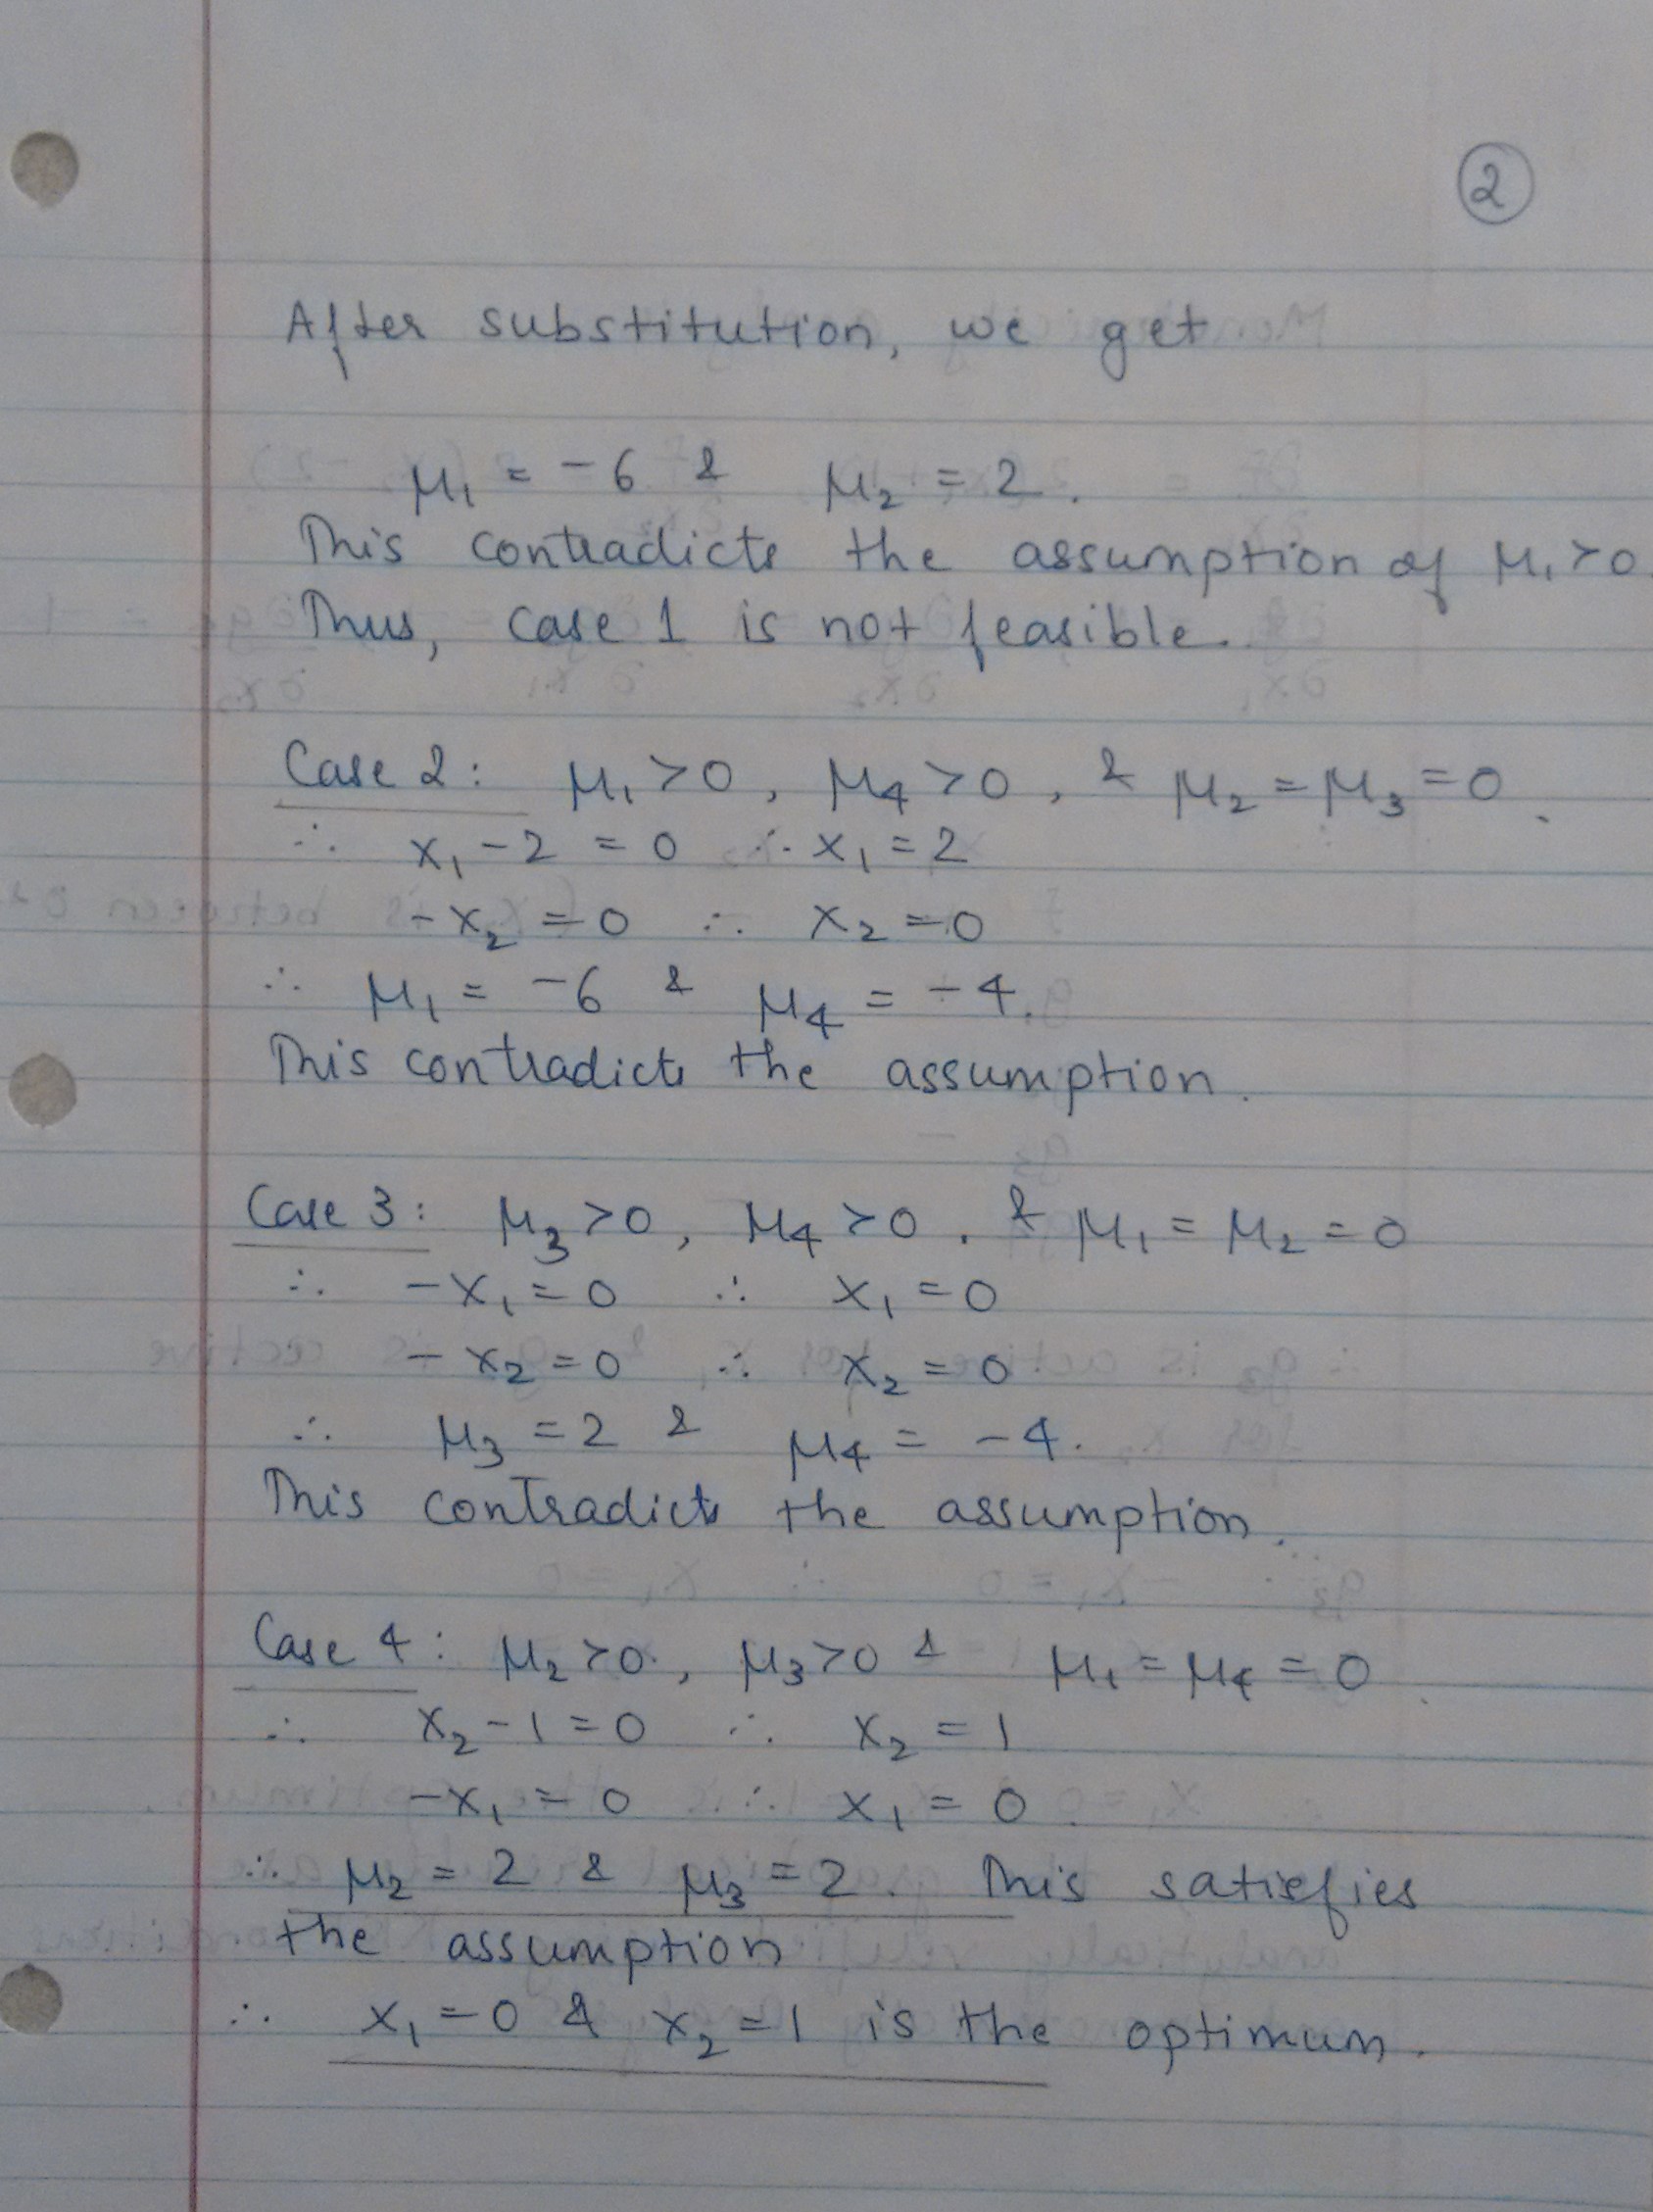 2
After substitution, we get
μ₁ = -6 & μ₂ = 2.
This contradicts the assumption of μ₁ > 0.
Thus, case 1 is not feasible.
Case 2: μ₁ > 0, μ₄ > 0, & μ₂ = μ₃ = 0.
∴ x₁ - 2 = 0 ∴ x₁ = 2
-x₂ = 0 ∴ x₂ = 0
∴ μ₁ = -6 & μ₄ = -4.
This contradicts the assumption.
Case 3: μ₃ > 0, μ₄ > 0, & μ₁ = μ₂ = 0
∴ -x₁ = 0 ∴ x₁ = 0
-x₂ = 0 ∴ x₂ = 0
∴ μ₃ = 2 & μ₄ = -4.
This contradicts the assumption.
Case 4: μ₂ > 0, μ₃ > 0 & μ₁ = μ₄ = 0.
∴ x₂ - 1 = 0 ∴ x₂ = 1
-x₁ = 0 ∴ x₁ = 0
∴ μ₂ = 2 & μ₃ = 2. This satisfies
the assumption
∴ x₁ = 0 & x₂ = 1 is the optimum.